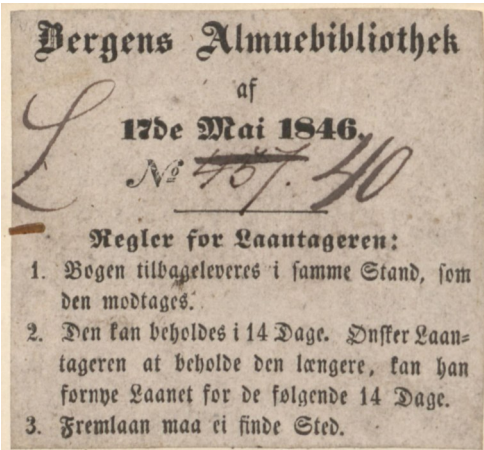 Bergens Almuebibliothek
af
17de Mai 1846.
L
No 457. 40
Regler for Laantageren:
1. Bogen tilbageleveres i samme Stand, som
den modtages.
2. Den kan beholdes i 14 Dage. Ønsker Laan-
tageren at beholde den længere, kan han
fornye Laanet for de følgende 14 Dage.
3. Fremlaan maa ei finde Sted.